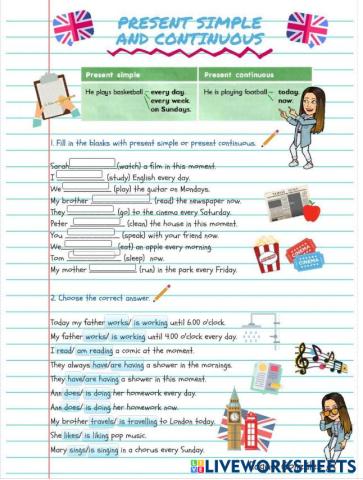 PRESENT SIMPLE
AND CONTINUOUS
Present simple Present continuous
He plays basketball every day.
every week.
on Sundays.
He is playing football today.
now.
1. Fill in the blanks with present simple or present continuous.
Sarah (watch) a film in this moment.
I (study) English every day.
We (play) the guitar on Mondays.
My brother (read) the newspaper now.
They (go) to the cinema every Saturday.
Peter (clean) the house in this moment.
You (speak) with your friend now.
We (eat) an apple every morning.
Tom (sleep) now.
My mother (run) in the park every Friday.
CINEMA
CINEMA
2. Choose the correct answer.
Today my father works/ is working until 6.00 o'clock.
My father works/ is working until 4.00 o'clock every day.
I read/ am reading a comic at the moment.
They always have/are having a shower in the mornings.
They have/are having a shower in this moment.
Ann does/ is doing her homework every day.
Ann does/ is doing her homework now.
My brother travels/ is travelling to London today.
She likes/ is liking pop music.
Mary sings/is singing in a chorus every Sunday.
LIVEWORKSHEETS